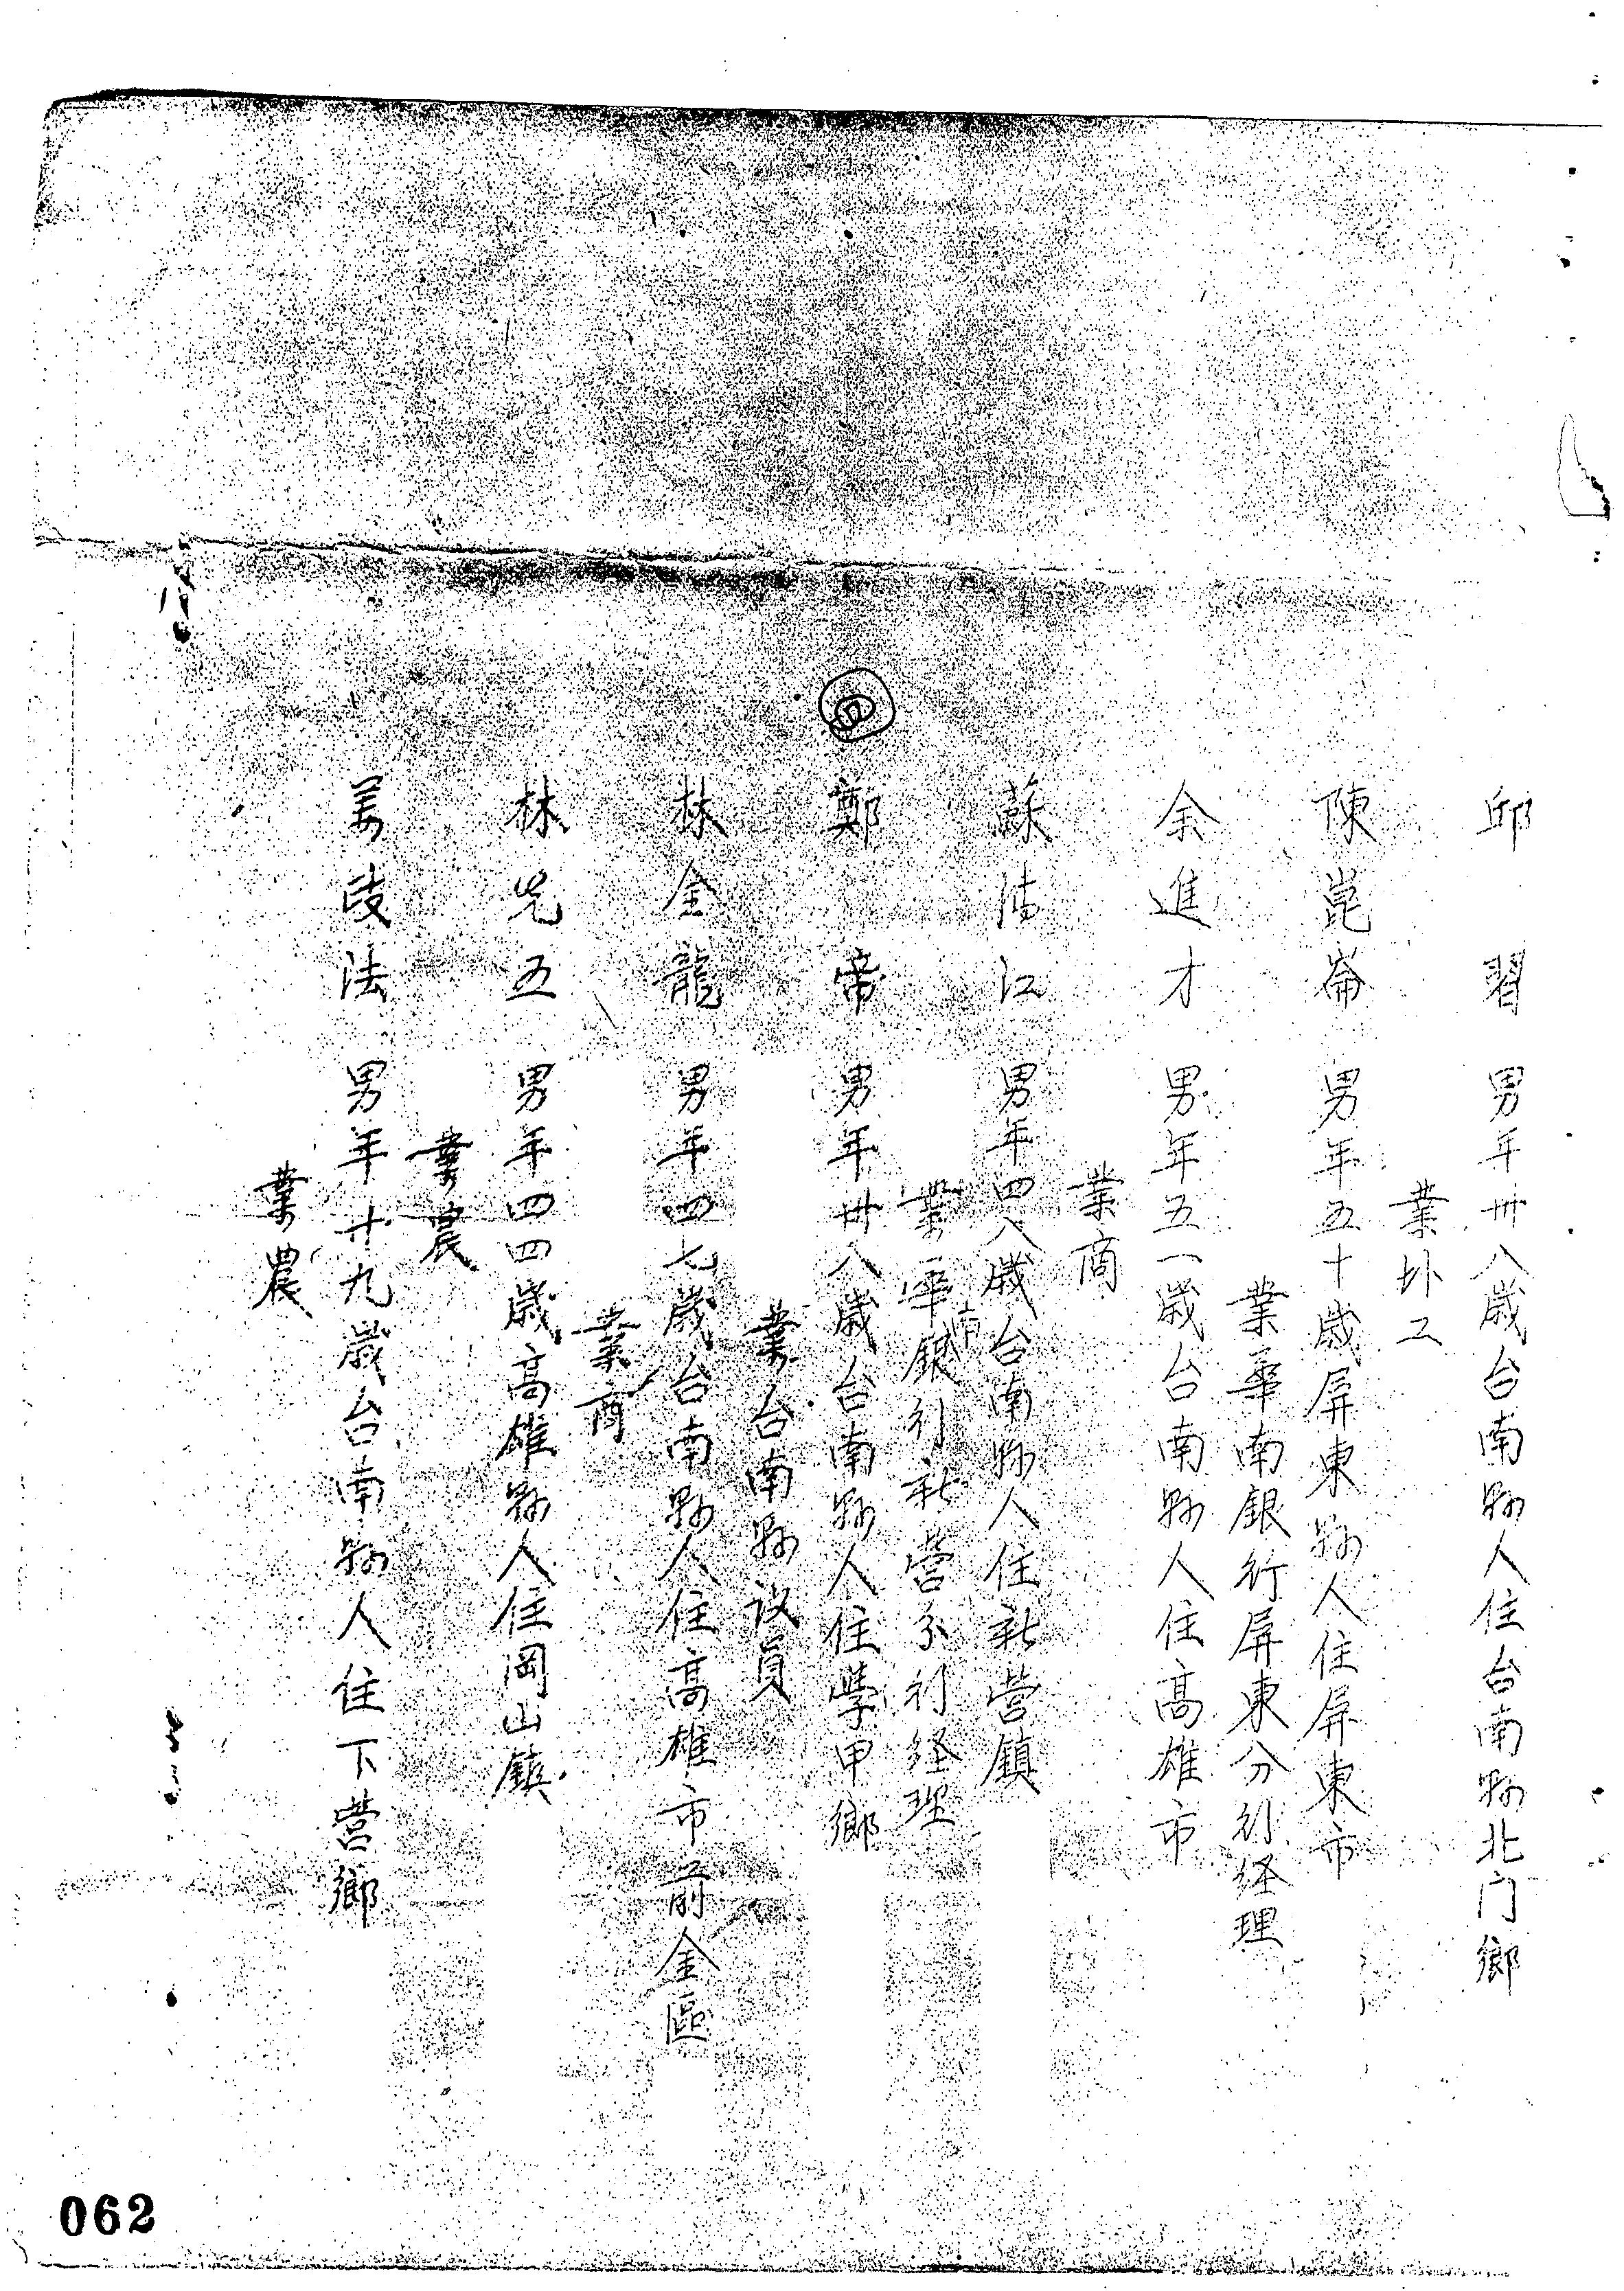 邱 習 男年卅八歲台南縣人住台南縣北门鄉
業外工
陳崑崙 男年五十歲屏東縣人住屏東市
業華南銀行屏東分行経理
余進才 男年五一歲台南縣人住高雄市
業商
蘇 江 男年四八歲台南縣人住新營鎮
業華南銀行新營分行経理
鄭 帝 男年卅八歲台南縣人住學甲鄉
業台南縣议員
林金龍 男年四七歲台南縣人住高雄市前金區
業商
林 五 男年四四歲高雄縣人住岡山鎮
業農
法 男年廿九歲台南縣人住下營鄉
業農
062